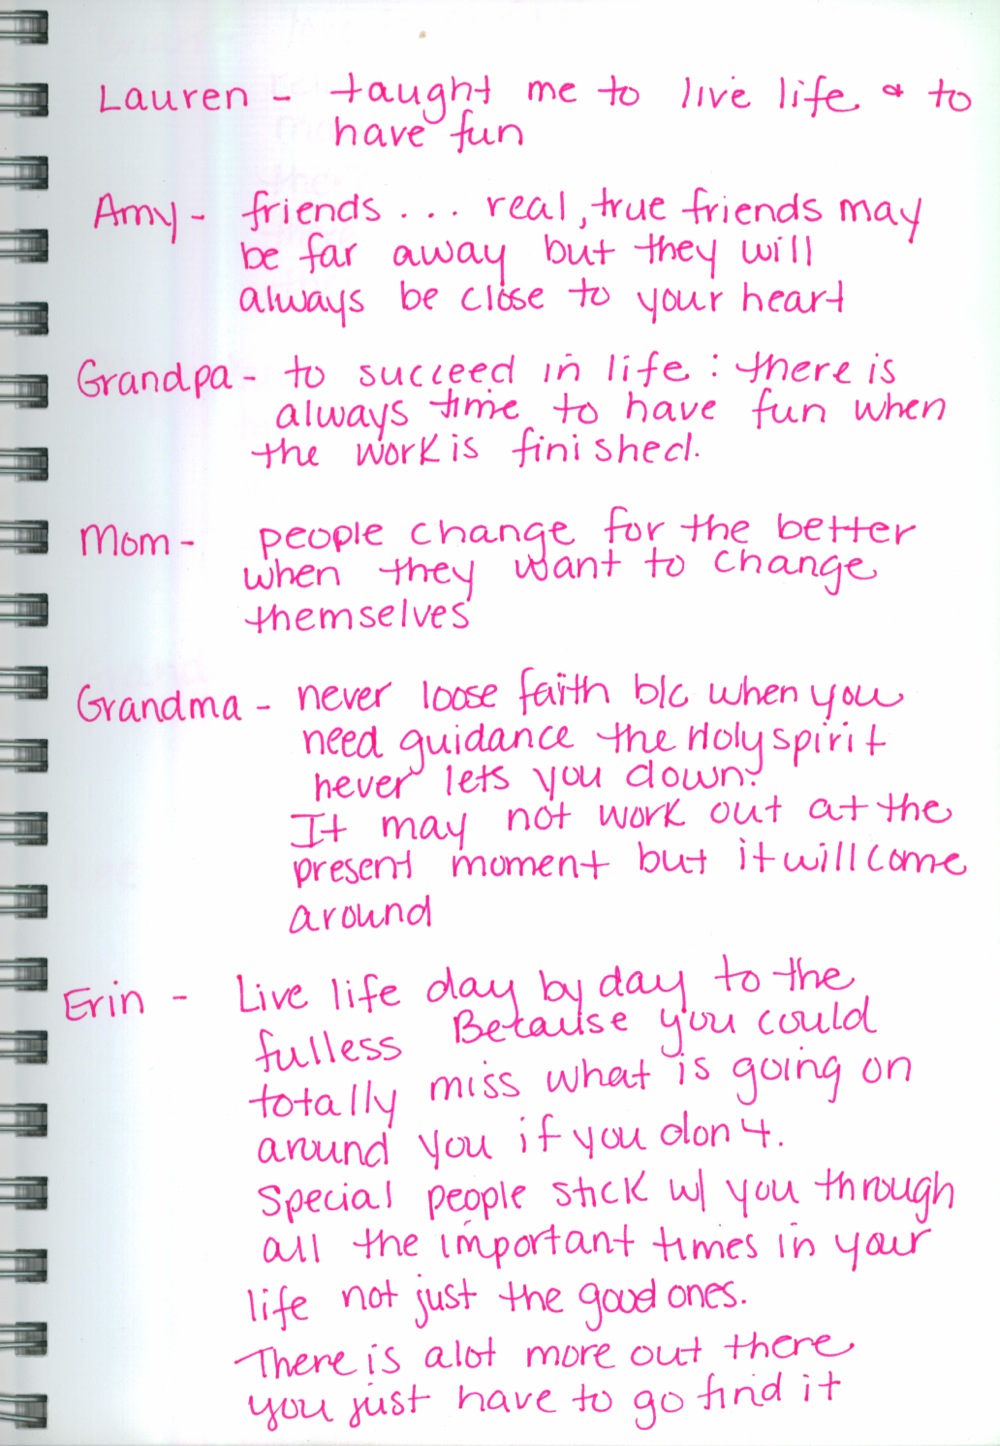 Lauren - taught me to live life & to
have fun
Amy - friends ... real, true friends may
be far away but they will
always be close to your heart
Grandpa - to succeed in life : there is
always time to have fun when
the work is finished.
Mom - people change for the better
when they want to change
themselves
Grandma - never loose faith b/c when you
need guidance the Holy spirit
never lets you down.
It may not work out at the
present moment but it will come
around
Erin - Live life day by day to the
fulless Because you could
totally miss what is going on
around you if you don't.
Special people stick w/ you through
all the important times in your
life not just the good ones.
There is alot more out there
you just have to go find it